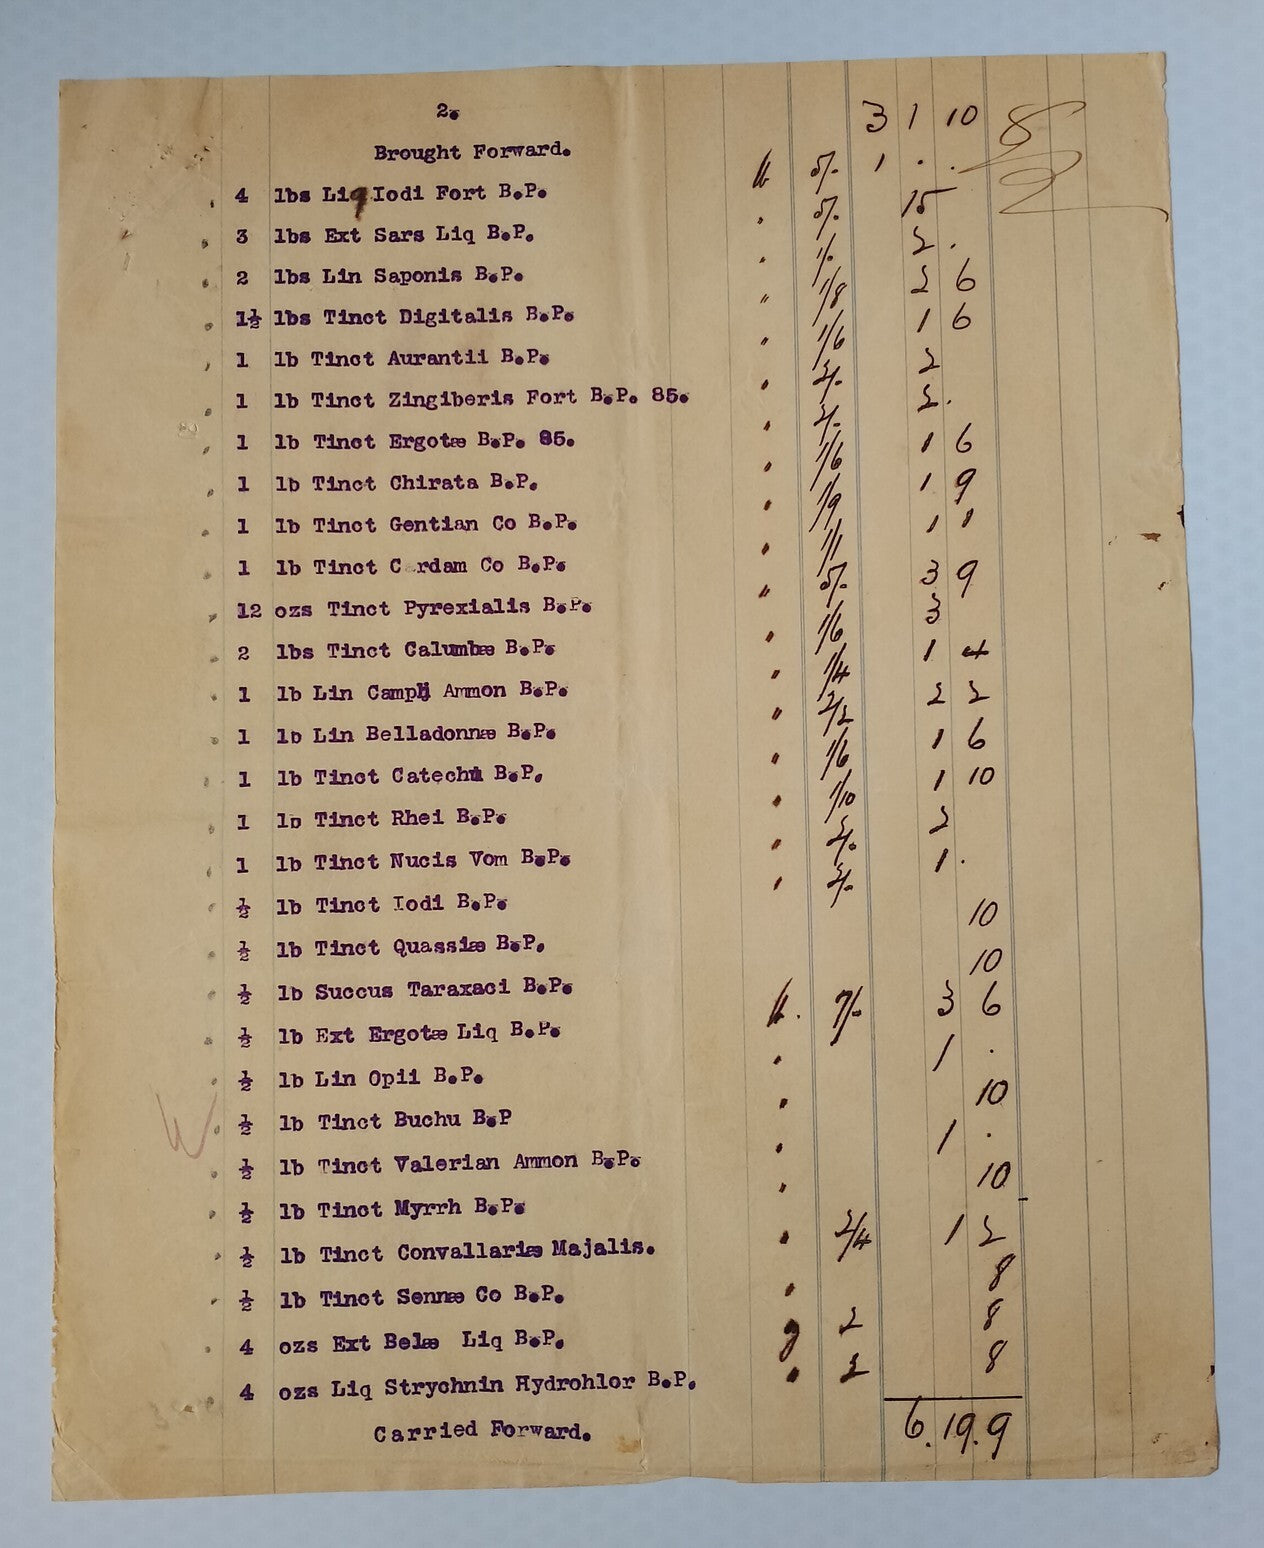 2.
Brought Forward. 3 1 10
4 lbs Liq Iodi Fort B.P. lb 5/- 1 . .
3 lbs Ext Sars Liq B.P. " 5/- 15
2 lbs Lin Saponis B.P. " 1/- 2 .
1½ lbs Tinct Digitalis B.P. " 1/8 2 6
1 lb Tinct Aurantii B.P. " 1/6 1 6
1 lb Tinct Zingiberis Fort B.P. 85. " 2/- 2
1 lb Tinct Ergotæ B.P. 85. " 2/- 2.
1 lb Tinct Chirata B.P. " 1/6 1 6
1 lb Tinct Gentian Co B.P. " 1/9 1 9
1 lb Tinct C rdam Co B.P. " 1/1 1 1
12 ozs Tinct Pyrexialis B.P. " 5/- 3 9
2 lbs Tinct Calumbæ B.P. " 1/6 3
1 lb Lin Camph Ammon B.P. " 1/4 1 4
1 lb Lin Belladonnæ B.P. " 2/2 2 2
1 lb Tinct Catechu B.P. " 1/6 1 6
1 lb Tinct Rhei B.P. " 1/10 1 10
1 lb Tinct Nucis Vom B.P. " 2/- 2
½ lb Tinct Iodi B.P. " 2/- 1 .
½ lb Tinct Quassiæ B.P. 10
½ lb Succus Taraxaci B.P. 10
½ lb Ext Ergotæ Liq B.P. lb. 7/- 3 6
½ lb Lin Opii B.P. " 1 .
½ lb Tinct Buchu B.P " 10
½ lb Tinct Valerian Ammon B.P. " 1 .
½ lb Tinct Myrrh B.P. " 10
½ lb Tinct Convallariæ Majalis. " 2/4 1 2
½ lb Tinct Sennæ Co B.P. " 8
4 ozs Ext Belæ Liq B.P. 2 8
4 ozs Liq Strychnin Hydrohlor B.P. " 2 8
Carried Forward. 6.19.9